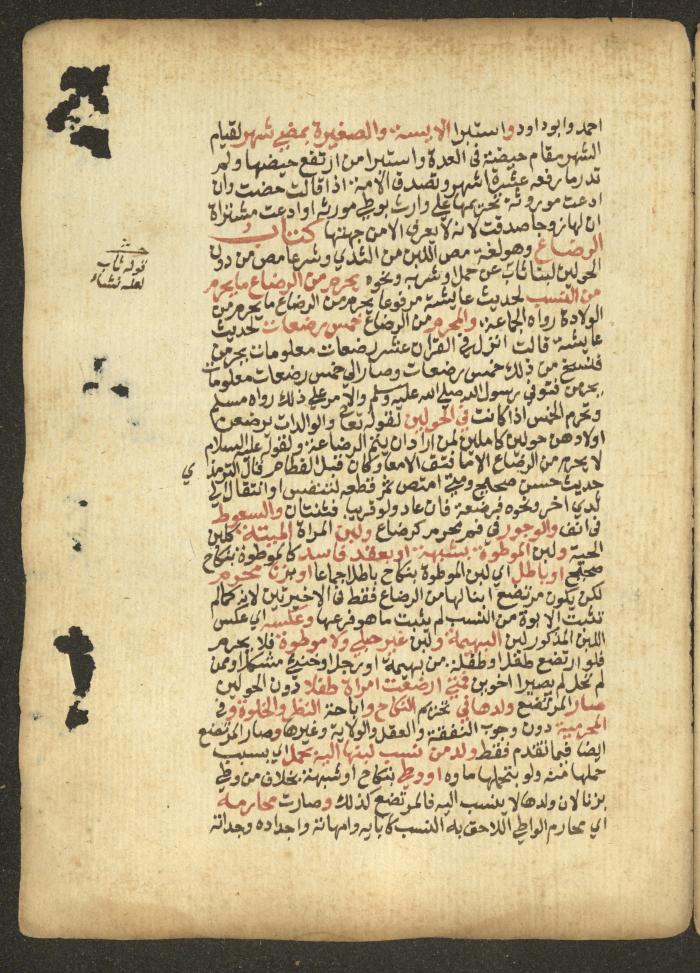 احمد وابو داود واستبرا الايسة والصغيرة بمضي شهر لقيام
الشهر مقام حيضة في العدة واستبرا من ارتفع حيضها ولم
تدر ما رفعه عشرة اشهر وتصدق الامة اذا قالت حضت وان
ادعت موروثة تحريمها على وارث بوطي مورثه او ادعت مشتراة
ان لها زوجا صدقت لانه لا يعرف الا من جهتها كتاب
الرضاع وهو لغة مص اللبن من الثدي وشرعا مص من دون
الحولين لبنا ثاب عن حمل او شربه ونحوه يحرم من الرضاع ما يحرم
من النسب لحديث عايشة مرفوعا يحرم من الرضاع ما يحرم من
الولادة رواه الجماعة والمحرم من الرضاع خمس رضعات لحديث
عايشة قالت انزل في القران عشر رضعات معلومات يحرمن
فنسخ من ذلك خمس رضعات وصار الى خمس رضعات معلومات
يحرمن فتوفي رسول الله صلى الله عليه وسلم والامر على ذلك رواه مسلم
وتحرم الخمس اذا كانت في الحولين لقوله تعالى والوالدات يرضعن
اولادهن حولين كاملين لمن اراد ان يتم الرضاعة ولقوله عليه السلام
لا يحرم من الرضاع الا ما فتق الامعا وكان قبل الفطام قال الترمذي
حديث حسن صحيح ومتى امتص ثم قطعه لتنفس او انتقال الى
ثدي اخر ونحوه فرضعة فان عاد ولو قريبا فثنتان والسعوط
في انف والوجور في فم محرم كرضاع ولبن المراة الميتة كلبن
الحية ولبن الموطوة بشبهة او بعقد فاسد كالموطوة بنكاح
صحيح او باطل اي لبن الموطوة بنكاح باطل اجماعا او بزنا محرم
لكن يكون مرتضع ابنا لها من الرضاع فقط في الاخيرتين لانه لما لم
تثبت الابوة من النسب لم يثبت ما هو فرعها وعكسه اي عكس
اللبن المذكور لبن البهيمة ولبن غير حبلى ولا موطوة فلا يحرم
فلو ارتضع طفل وطفلة من بهيمة او رجل او خنثى مشكل او ممن
لم تحمل لم يصيرا اخوين فمتى ارضعت امراة طفلا دون الحولين
صار المرتضع ولدها في تحريم النكاح واباحة النظر والخلوة وفي
المحرمية دون وجوب النفقة والعقل والولاية وغيرها وصار المرتضع
ايضا فيما تقدم فقط ولد من نسب لبنها اليه بحمل اي بسبب
حملها منه ولو بتحملها ماه او وطي بنكاح او شبهة بخلاف من وطي
بزنا لان ولدها لا ينسب اليه فالمرتضع كذلك وصارت محارمه
اي محارم الواطي اللاحق به النسب كابايه وامهاته واجداده وجداته
قوله ثاب